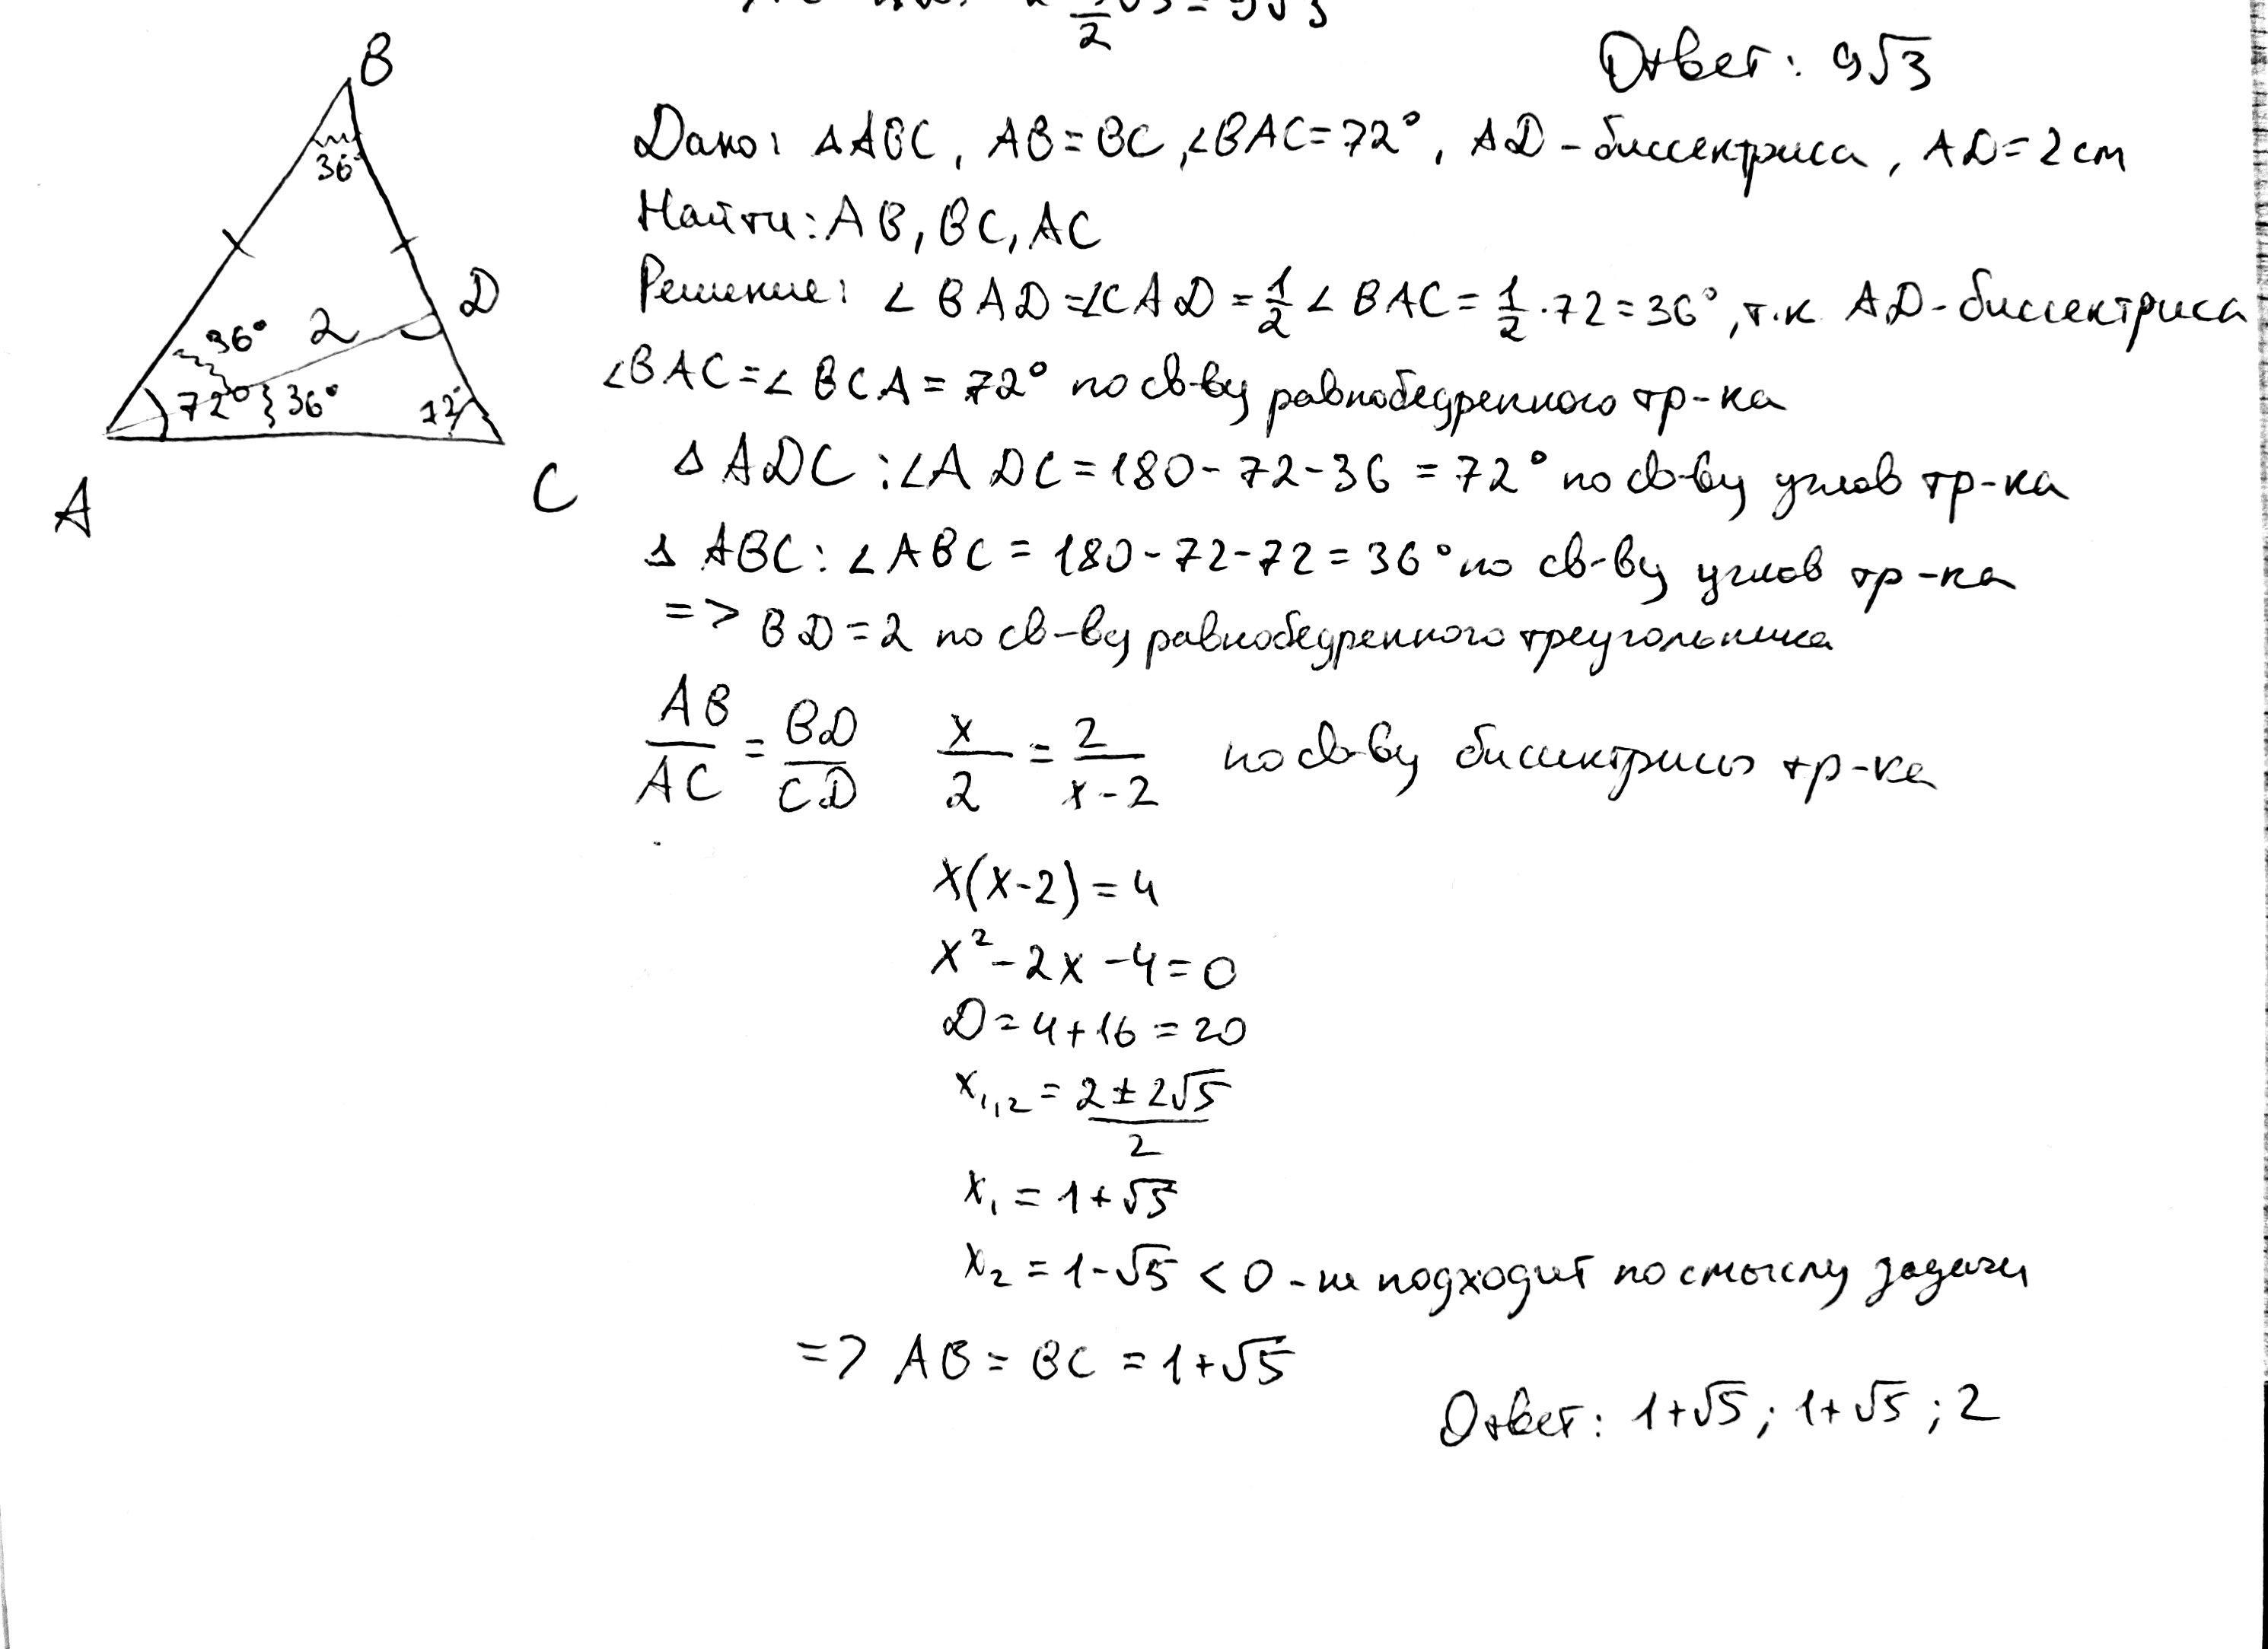 2
Ответ: 9√3
B
36°
Дано: △ABC, AB=BC, ∠BAC=72°, AD-биссектриса, AD=2см
Найти: AB, BC, AC
Решение: ∠BAD=∠CAD=1/2∠BAC=1/2·72=36°, т.к AD-биссектриса
D
36° 2
72° 36°
∠BAC=∠BCA=72° по св-ву равнобедренного тр-ка
△ADC: ∠ADC=180-72-36=72° по св-ву углов тр-ка
A C
△ABC: ∠ABC=180-72-72=36° по св-ву углов тр-ка
=> BD=2 по св-ву равнобедренного треугольника
AB/AC=BD/CD x/2=2/x-2 по св-ву биссектрисы тр-ка
x(x-2)=4
x²-2x-4=0
D=4+16=20
x₁,₂=2±2√5/2
x₁=1+√5
x₂=1-√5<0-не подходит по смыслу задачи
=> AB=BC=1+√5
Ответ: 1+√5; 1+√5; 2